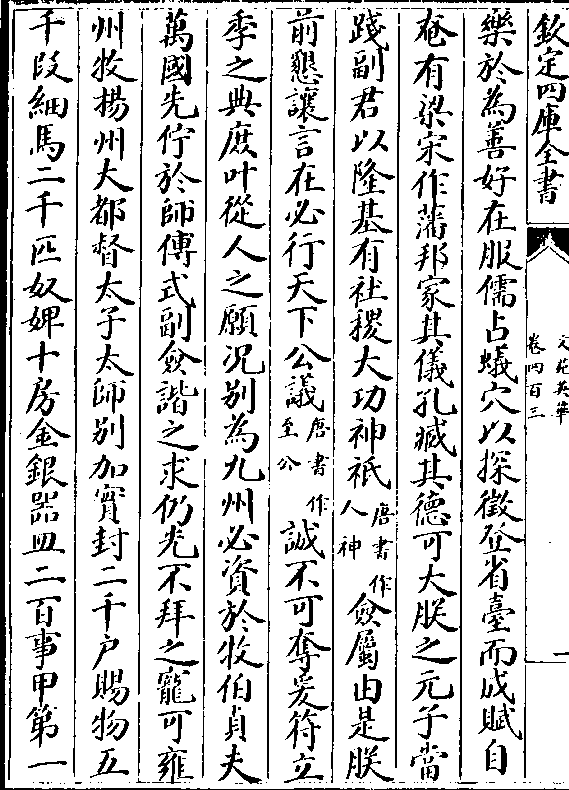 欽定四庫全書
文苑英華
卷四百三
一
樂於為善好在服儒占蟻穴以探徵登省臺而成賦自
奄有梁宋作藩邦家其儀孔臧其德可大朕之元子當
踐副君以隆基有社稷大功神祇唐書作人神僉屬由是朕
前懇讓言在必行天下公議唐書作至公誠不可奪爰符立
季之典庶叶從人之願况别為九州必資於牧伯貞夫
萬國先佇於師傅式副僉諧之求仍先不拜之寵可雍
州牧揚州大都督太子太師别加實封二千户賜物五
千段細馬二千匹奴婢十房金銀器皿二百事甲第一